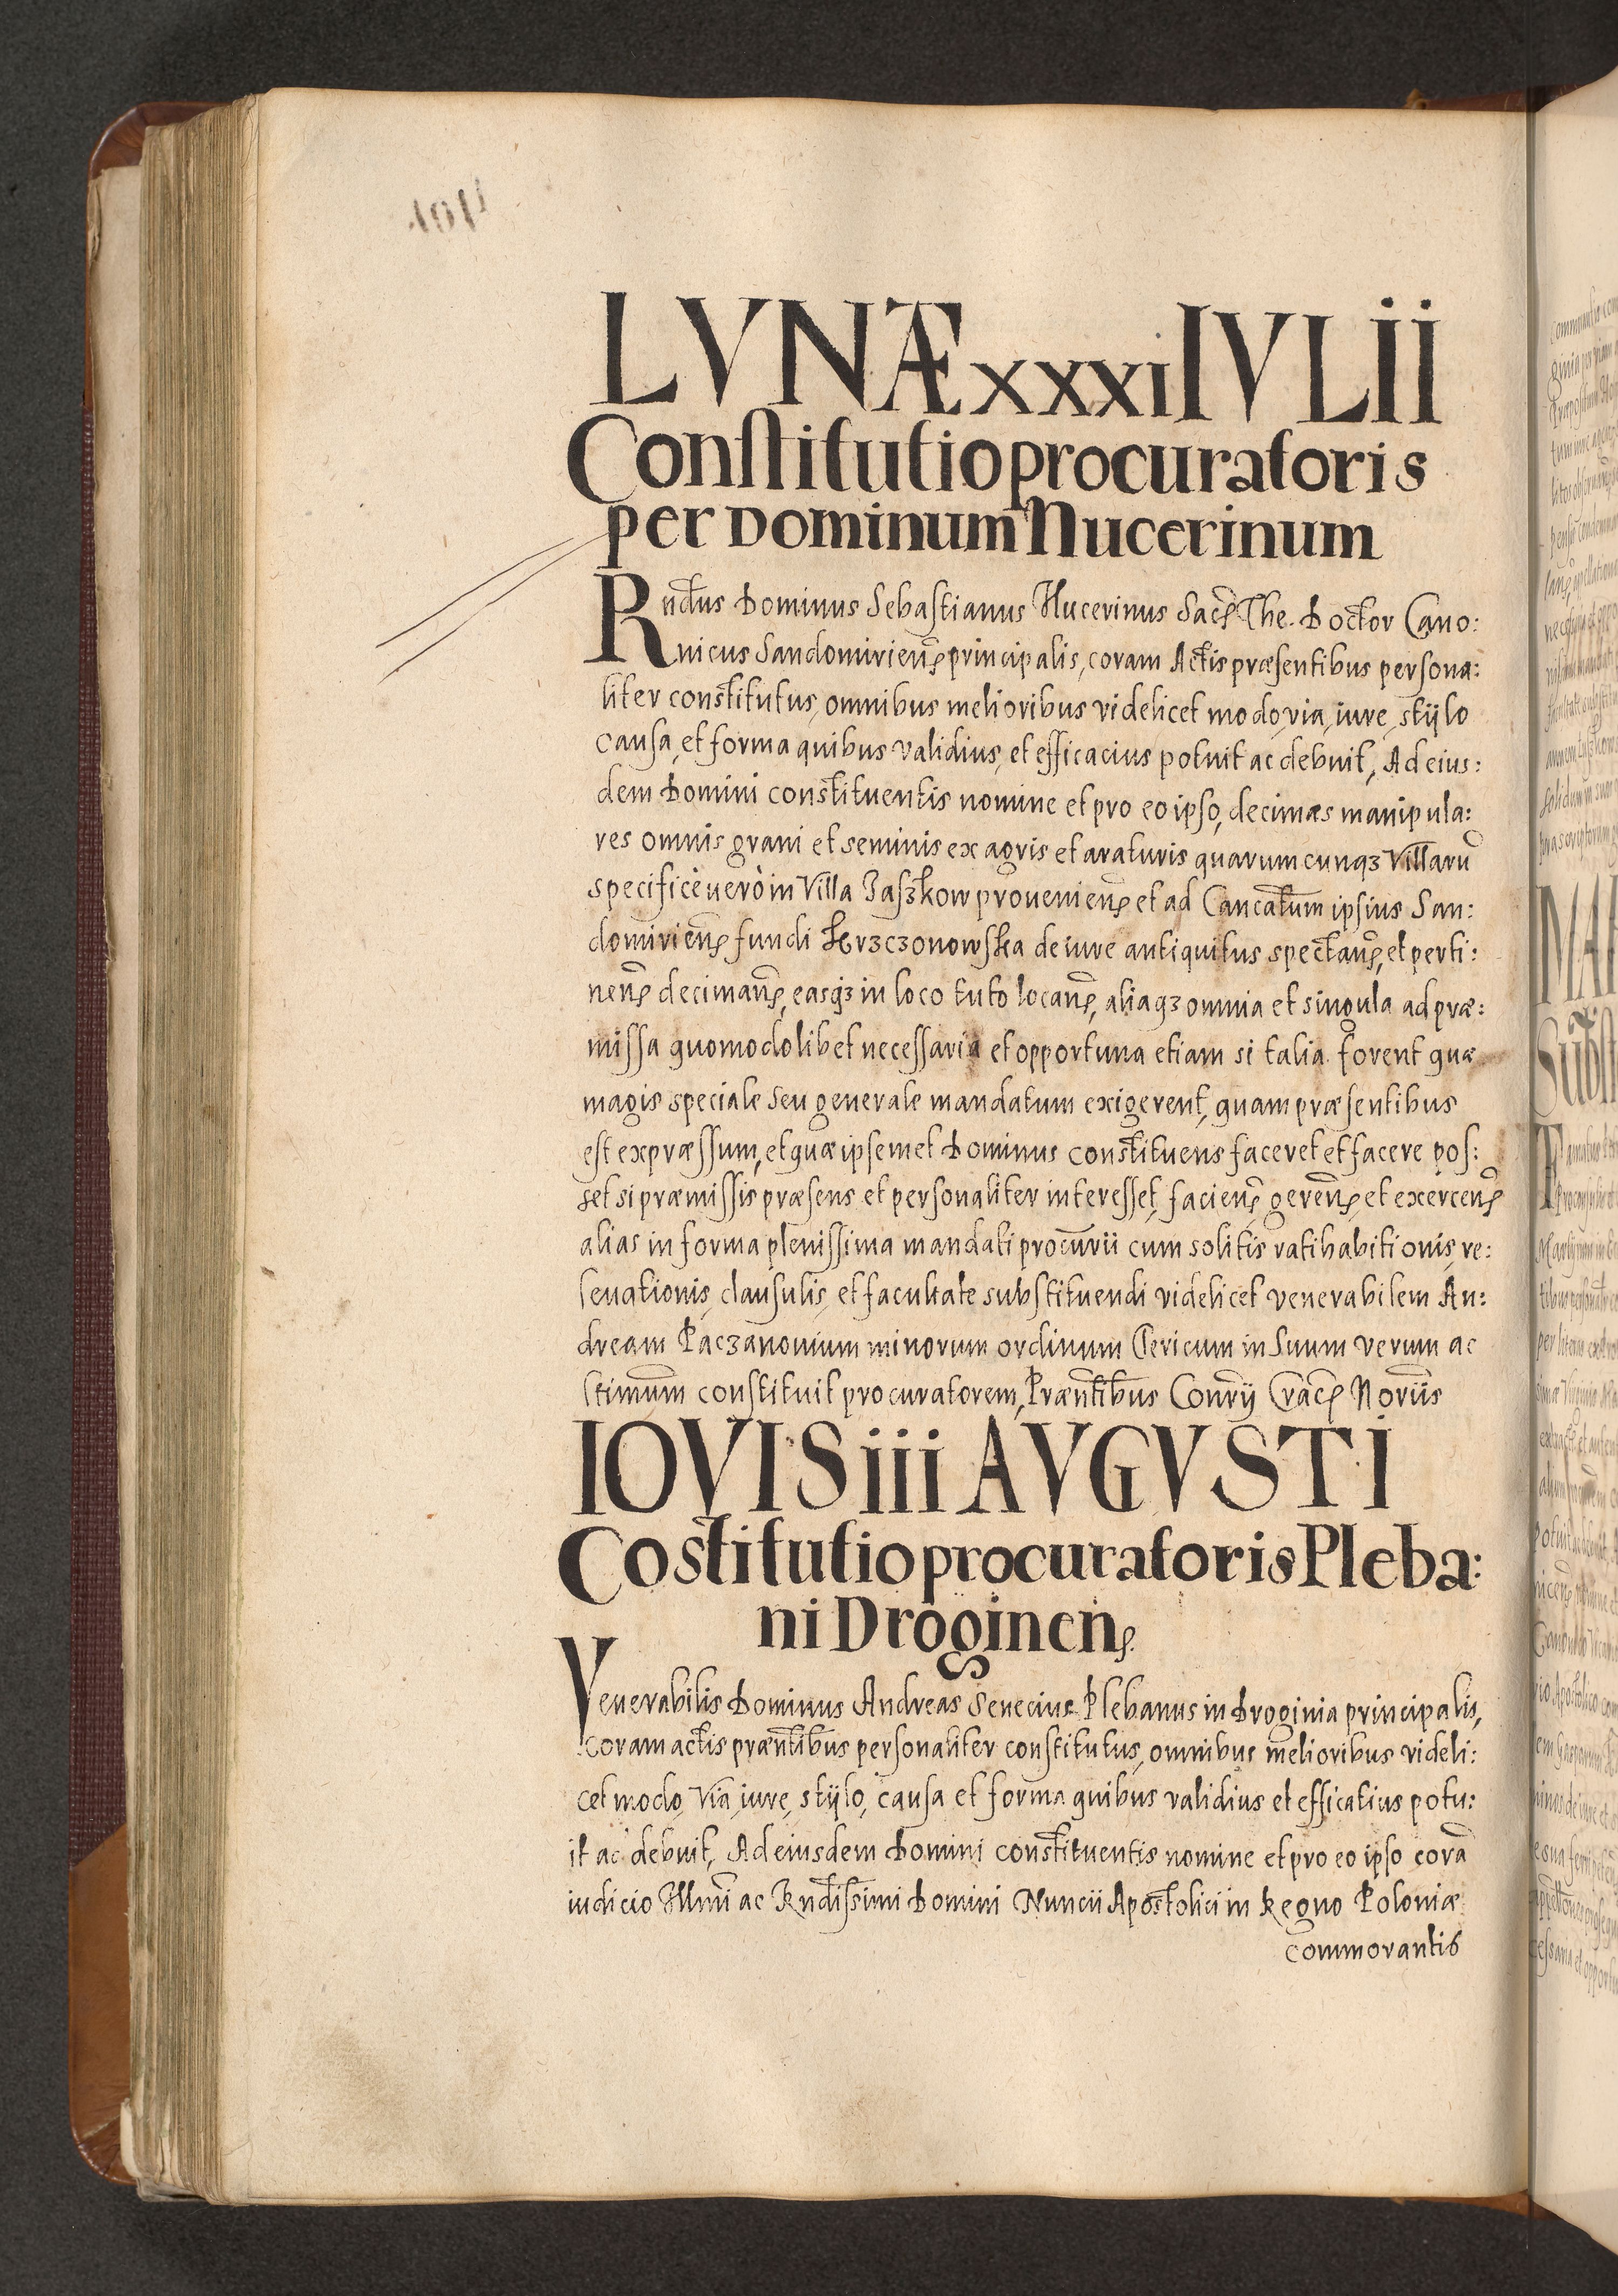 LVNÆ xxxi IVLii
Constitutio procuratoris
per Dominum Nucerinum
Rndus Dominus Sebastianus Nucerinus Sacrę The. Doctor Cano:
nicus Sandomirienş principalis, coram Actis præsentibus persona:
liter constitutus, omnibus melioribus videlicet modo, via, iure, stijlo
causa, et forma quibus validius, et efficacius potuit ac debuit, Ad eius:
dem Domini constituentis nomine et pro eo ipso, decimas manipula:
res omnis grani et seminis ex agris et araturis quarumcunqꝫ Villarũ
specificè uerò in Villa Jaszkow prouenienş et ad Cancatum ipsius San:
domirienş fundi Krzczonowska de iure antiquitus spectanş, et perti:
nenş decimanş, easqꝫ in loco tuto locanş, aliaqꝫ omnia et singula ad præ:
missa quomodolibet necessaria et opportuna etiam si talia forent quæ
magis speciale seu generale mandatum exigerent, quam præsentibus
est expræssum, et quæ ipsemet Dominus constituens faceret et facere pos:
set si præmissis præsens et personaliter interesset, facienş, gerenş, et exercenş
alias in forma plenissima mandati procurii cum solitis ratihabitionis, re:
leuationis, clausulis, et facultate substituendi videlicet venerabilem An:
dream Paczanouium minorum ordinum Clericum in Suum verum ac
ltimum constituit procuratorem, Præntibus Conrij Cracş Noriis
IOVIS iii AVGVSTi
Costitutio procuratoris Pleba:
ni Droginenş
Venerabilis Dominus Andreas Senecius Plebanus in Droginia principalis,
coram actis præntibus personaliter constitutus, omnibus melioribus videli:
cet modo, Via, iure, stijlo, causa et forma quibus validius et efficatius potu:
it ac debuit, Ad eiusdem Domini constituentis nomine et pro eo ipso corã
iudicio Illmi ac Rndissimi Domini Nuncii Apostolici in Regno Poloniæ
commorantis